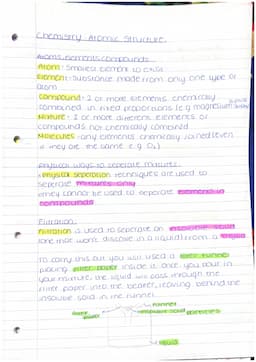 Chemistry: Atomic Structure.
Atoms, elements, compounds
Atom: Smallest element to exist
Element: Substance made from only one type of
atom
Compound: 2 or more elements chemically
combined in fixed proportions (e.g magnesium
Mixture: 2 or more different elements or
compounds not chemically combined
Molecules: any elements chemically joined (even
if they are the same e.g O₂)
Physical ways to seperate mixtures
Physical seperation techniques are used to
seperate mixtures only
They cannot be used to seperate elements in
compounds
Filtration:
Filtration is used to seperate an insoluble solid
(one that won't dissolve in a liquid) from a liquid
To carry this out you will used a filter funnel
placing filter paper inside it. Once you pour in
your mixture, the liquid will pass through the
filter paper into the beaker, leaving behind the
insoluble solid in the funnel
funnel
filter
paper
particles
liquid